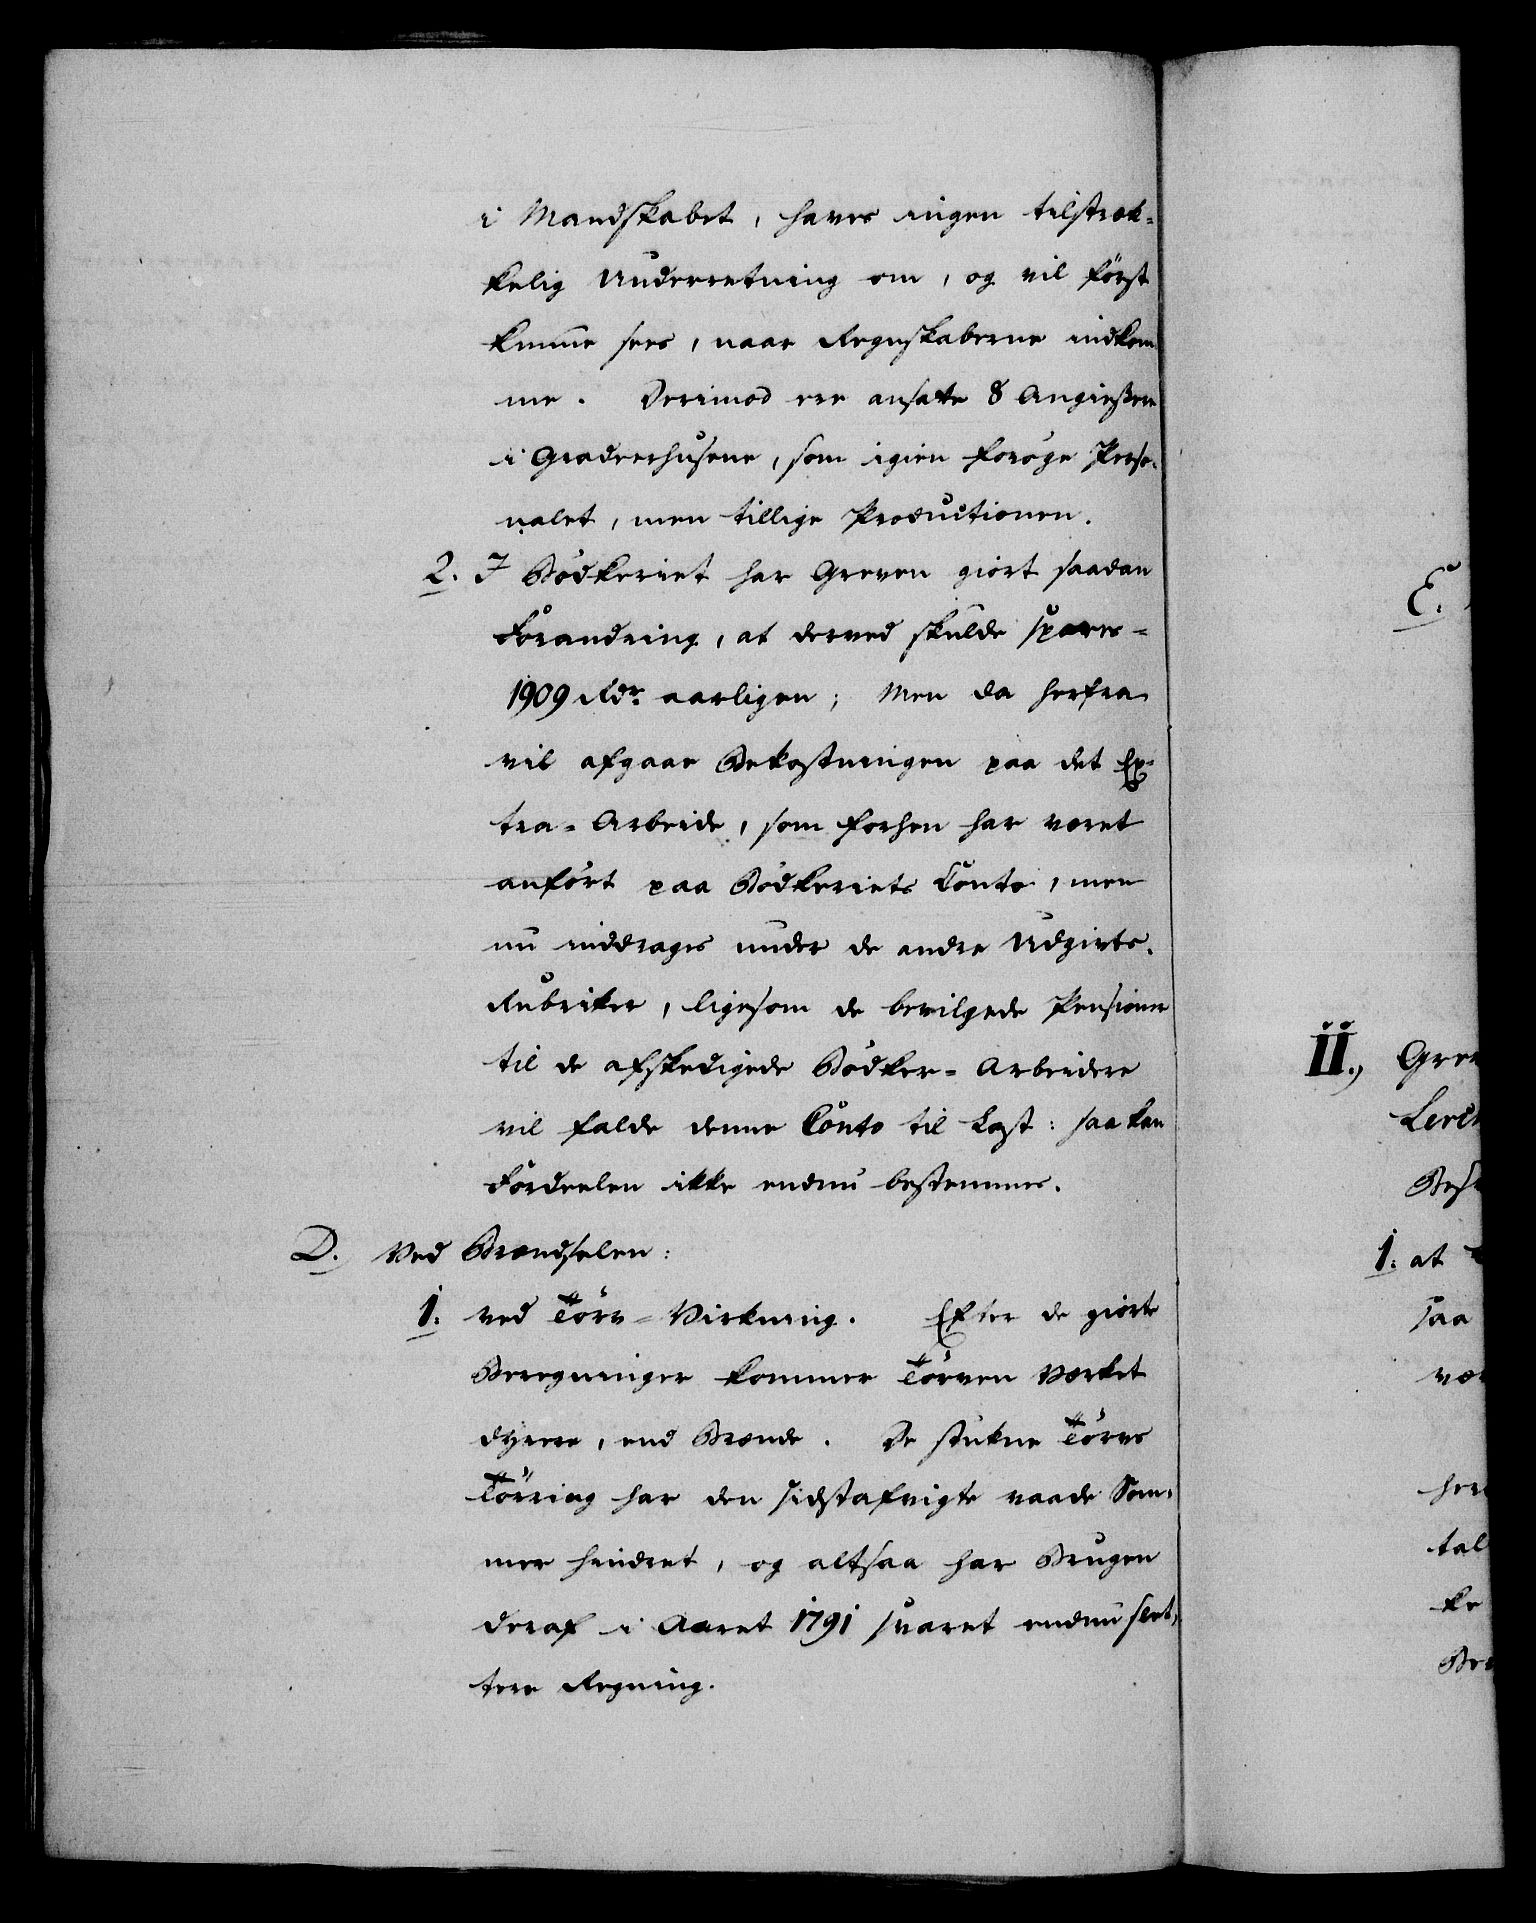 i Mandskabet, haves ingen tilstræk-
kelig Underretning om, og vil först
kunne sees, naar Regnskaberne indkom
me. Derimod ere ansatte 8 Angiesere
i Gradeerhusene, som igien foröge Perso-
nalet, men tillige Productionen.
2. I Bödkeriet har Greven giort saadan
Forandring, at derved skulde spares
1909 Rdr. aarligen; Men da herfra
vil afgaae Bekostningen paa det Ex-
tra-Arbeide, som forhen har været
anfört paa Bödkeriets Conto, men
nu inddrages under de andre Udgivts-
Rubriker, ligesom de bevilgede Pensioner
til de afskedigede Bödker-Arbeidere
vil falde denne Conto til Last: saa kan
Fordeelen ikke endnu bestemmes.
D. Ved Brændselen:
1. ved Törv-Virkning. Efter de giorte
Beregninger kommer Törven Værket
dyrere, end Brænde. De stukne Törvs
Törring har den sidstafvigte vaade Som-
mer hindret, og altsaa har Brugen
deraf i Aaret 1791 svaret endnu slet-
tere Regning.
E.
II., Grev
Lerch
Besk
1. at
saa
vær
her
tal
ke
Ber